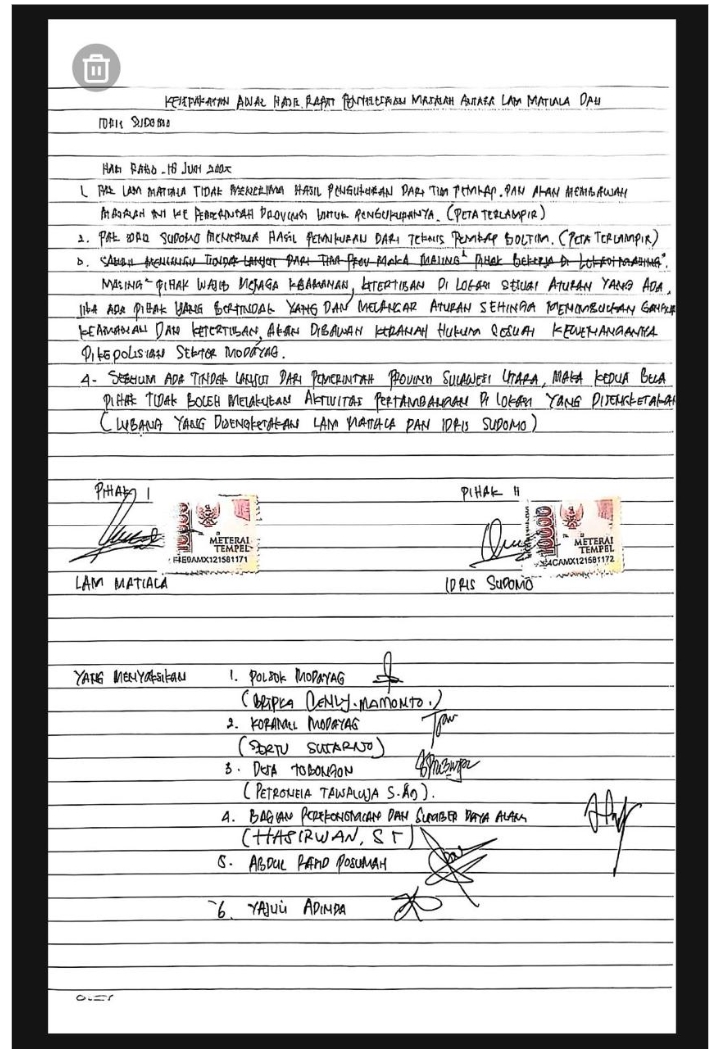 KESEPAKATAN AWAL HASIL RAPAT PENYELESAIAN MASALAH ANTARA LAM MATIALA DAN
IDRIS SUDOMO
HARI RABU - 18 JUNI
1. PAK LAM MATIALA TIDAK MENERIMA HASIL PENGUKURAN DARI TIM PEMKAP. DAN AKAN MEMBAWAH
MASALAH INI KE PEMERINTAH PROVINSI UNTUK PENGUKURANYA. (PETA TERLAMPIR)
2. PAK IDRIS SUDOMO MENERIMA HASIL PENGUKURAN DARI TEKNIS PEMKAP BOLTIM. (PETA TERLAMPIR)
SAMBIL MENUNGU TINDAK LANJUT DARI TIM PROV MAKA MASING² PIHAK BEKERJA DI LOKASI MASING².
MASING² PIHAK WAJIB MENJAGA KEAMANAN, KETERTIBAN DI LOKASI SESUAI ATURAN YANG ADA,
JIKA ADA PIHAK YANG BERTINDAK YANG DAN MELANGAR ATURAN SEHINGA MENIMBULKAN
KEAMANAN DAN KETERTIBAN, AKAN DIBAWAH KERANAH HUKUM SESUAI KEWENANGANKA
DIKEPOLISIAN SEKTOR MODAYAG.
4- SEBELUM ADA TINDAK LANJUT DARI PEMERINTAH PROVINSI SULAWESI UTARA, MAKA KEDUA BELA
PIHAK TIDAK BOLEH MELAKUKAN AKTIVITAS PERTAMBANGAN DI LOKASI YANG DISENGKETAKAN
(LUBANG YANG DISENGKETAKAN LAM MATIALA DAN IDRIS SUDOMO)
PIHAK I PIHAK II
10000 METERAI TEMPEL 10000 METERAI TEMPEL
AMX121581171 AMX121581172
LAM MATIALA IDRIS SUDOMO
YANG MENYAKSIKAN 1. POLSEK MODAYAG
(BRIPKA DENLY. MAMONTO.)
2. KORAMIL MODAYAG
(SERTU SUTARNO)
3. DESA TOBONGON
(PETRONELA TAWALUJA S.AG).
4. BAGIAN PEREKONOMIAN DAN SUMBER DAYA ALAM
(HASIRWAN, ST)
5. ABDUL POSUMAH
6. ADINDA